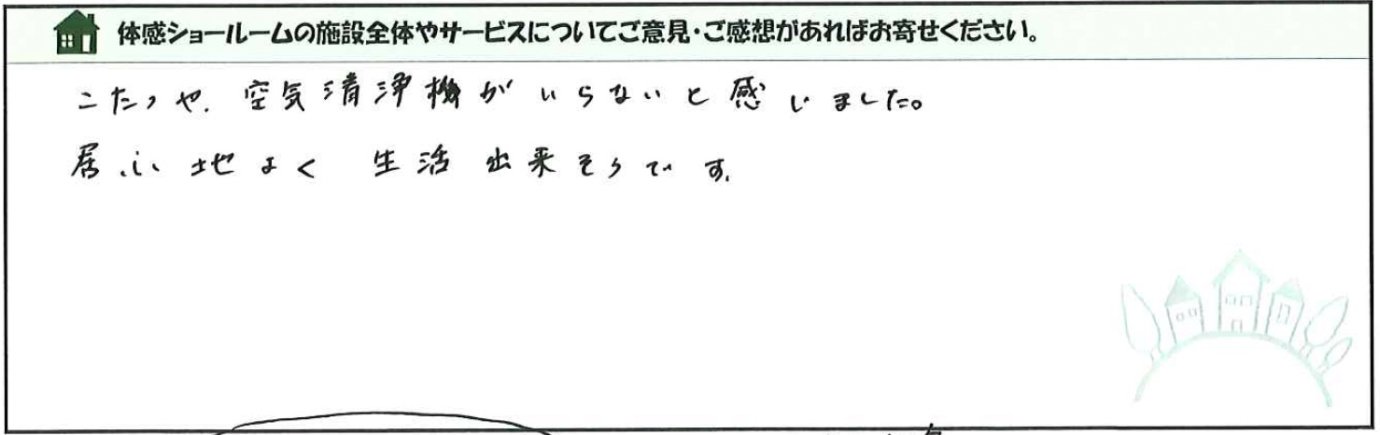 体感ショールームの施設全体やサービスについてご意見・ご感想があればお寄せください。
こたつや、空気清浄機がいらないと感じました。
居心地よく 生活出来そうです。